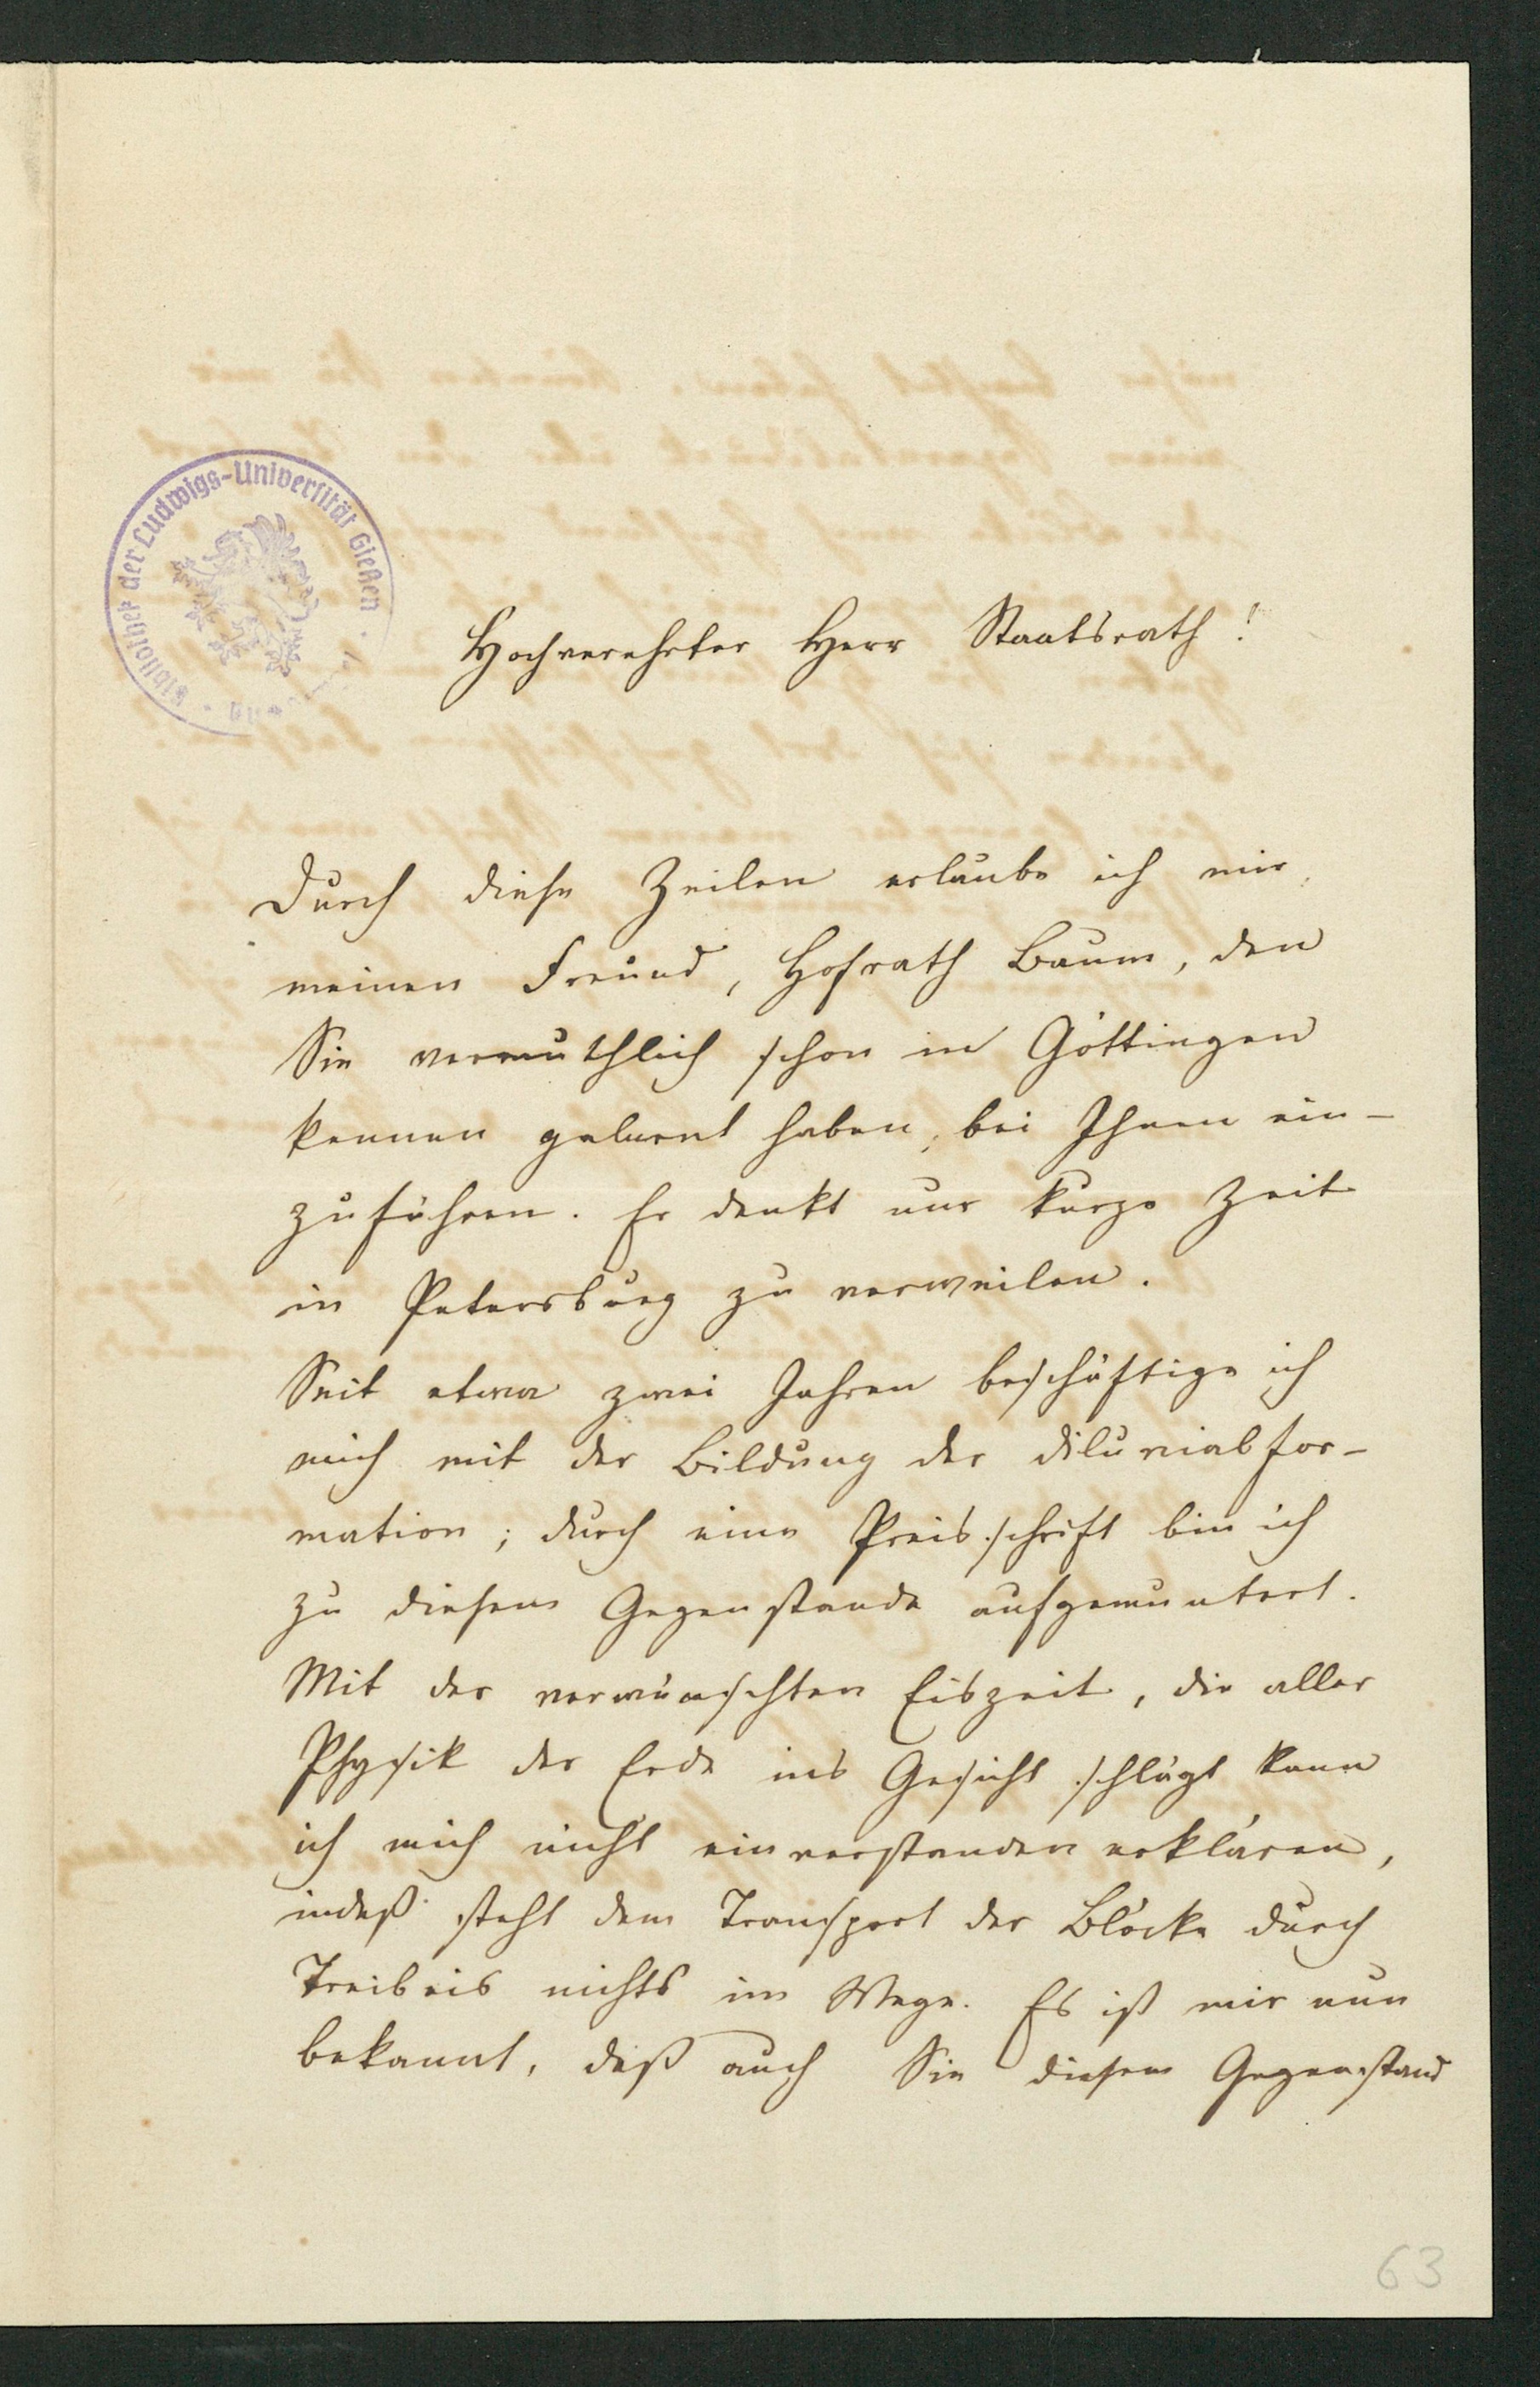 Bibliothek der Ludwigs-Universität Gießen
Hochverehrter Herr Staatsrath!
Durch diese Zeilen erlaube ich mir,
meinen Freund, Hofrath Baum, den
Sie vermuthlich schon in Göttingen
kennen gelernt haben, bei Ihnen ein-
zuführen. Er denkt nur kurze Zeit
in Petersburg zu verweilen.
Seit etwa zwei Jahren beschäftige ich
mich mit der Bildung der Diluvialfor-
mation; durch eine Preisschrift bin ich
zu diesem Gegenstande aufgemuntert.
Mit der verwünschten Eiszeit, die aller
Physik der Erde ins Gesicht schlägt kann
ich mich nicht einverstanden erklären,
indeß steht dem Transport der Blöcke durch
Treibeis nichts im Wege. Es ist mir nun
bekannt, daß auch Sie diesem Gegenstand
63